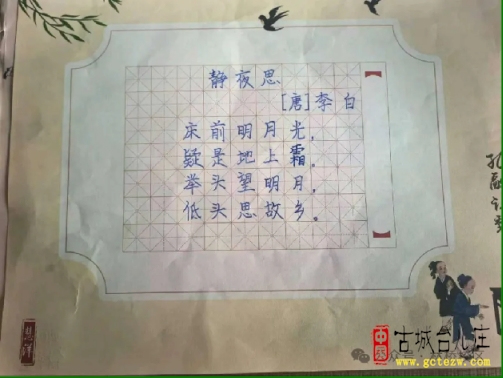 静夜思
[唐]李白
床前明月光，
疑是地上霜。
举头望明月，
低头思故乡。
中国
古城台儿庄
www.gctezw.com